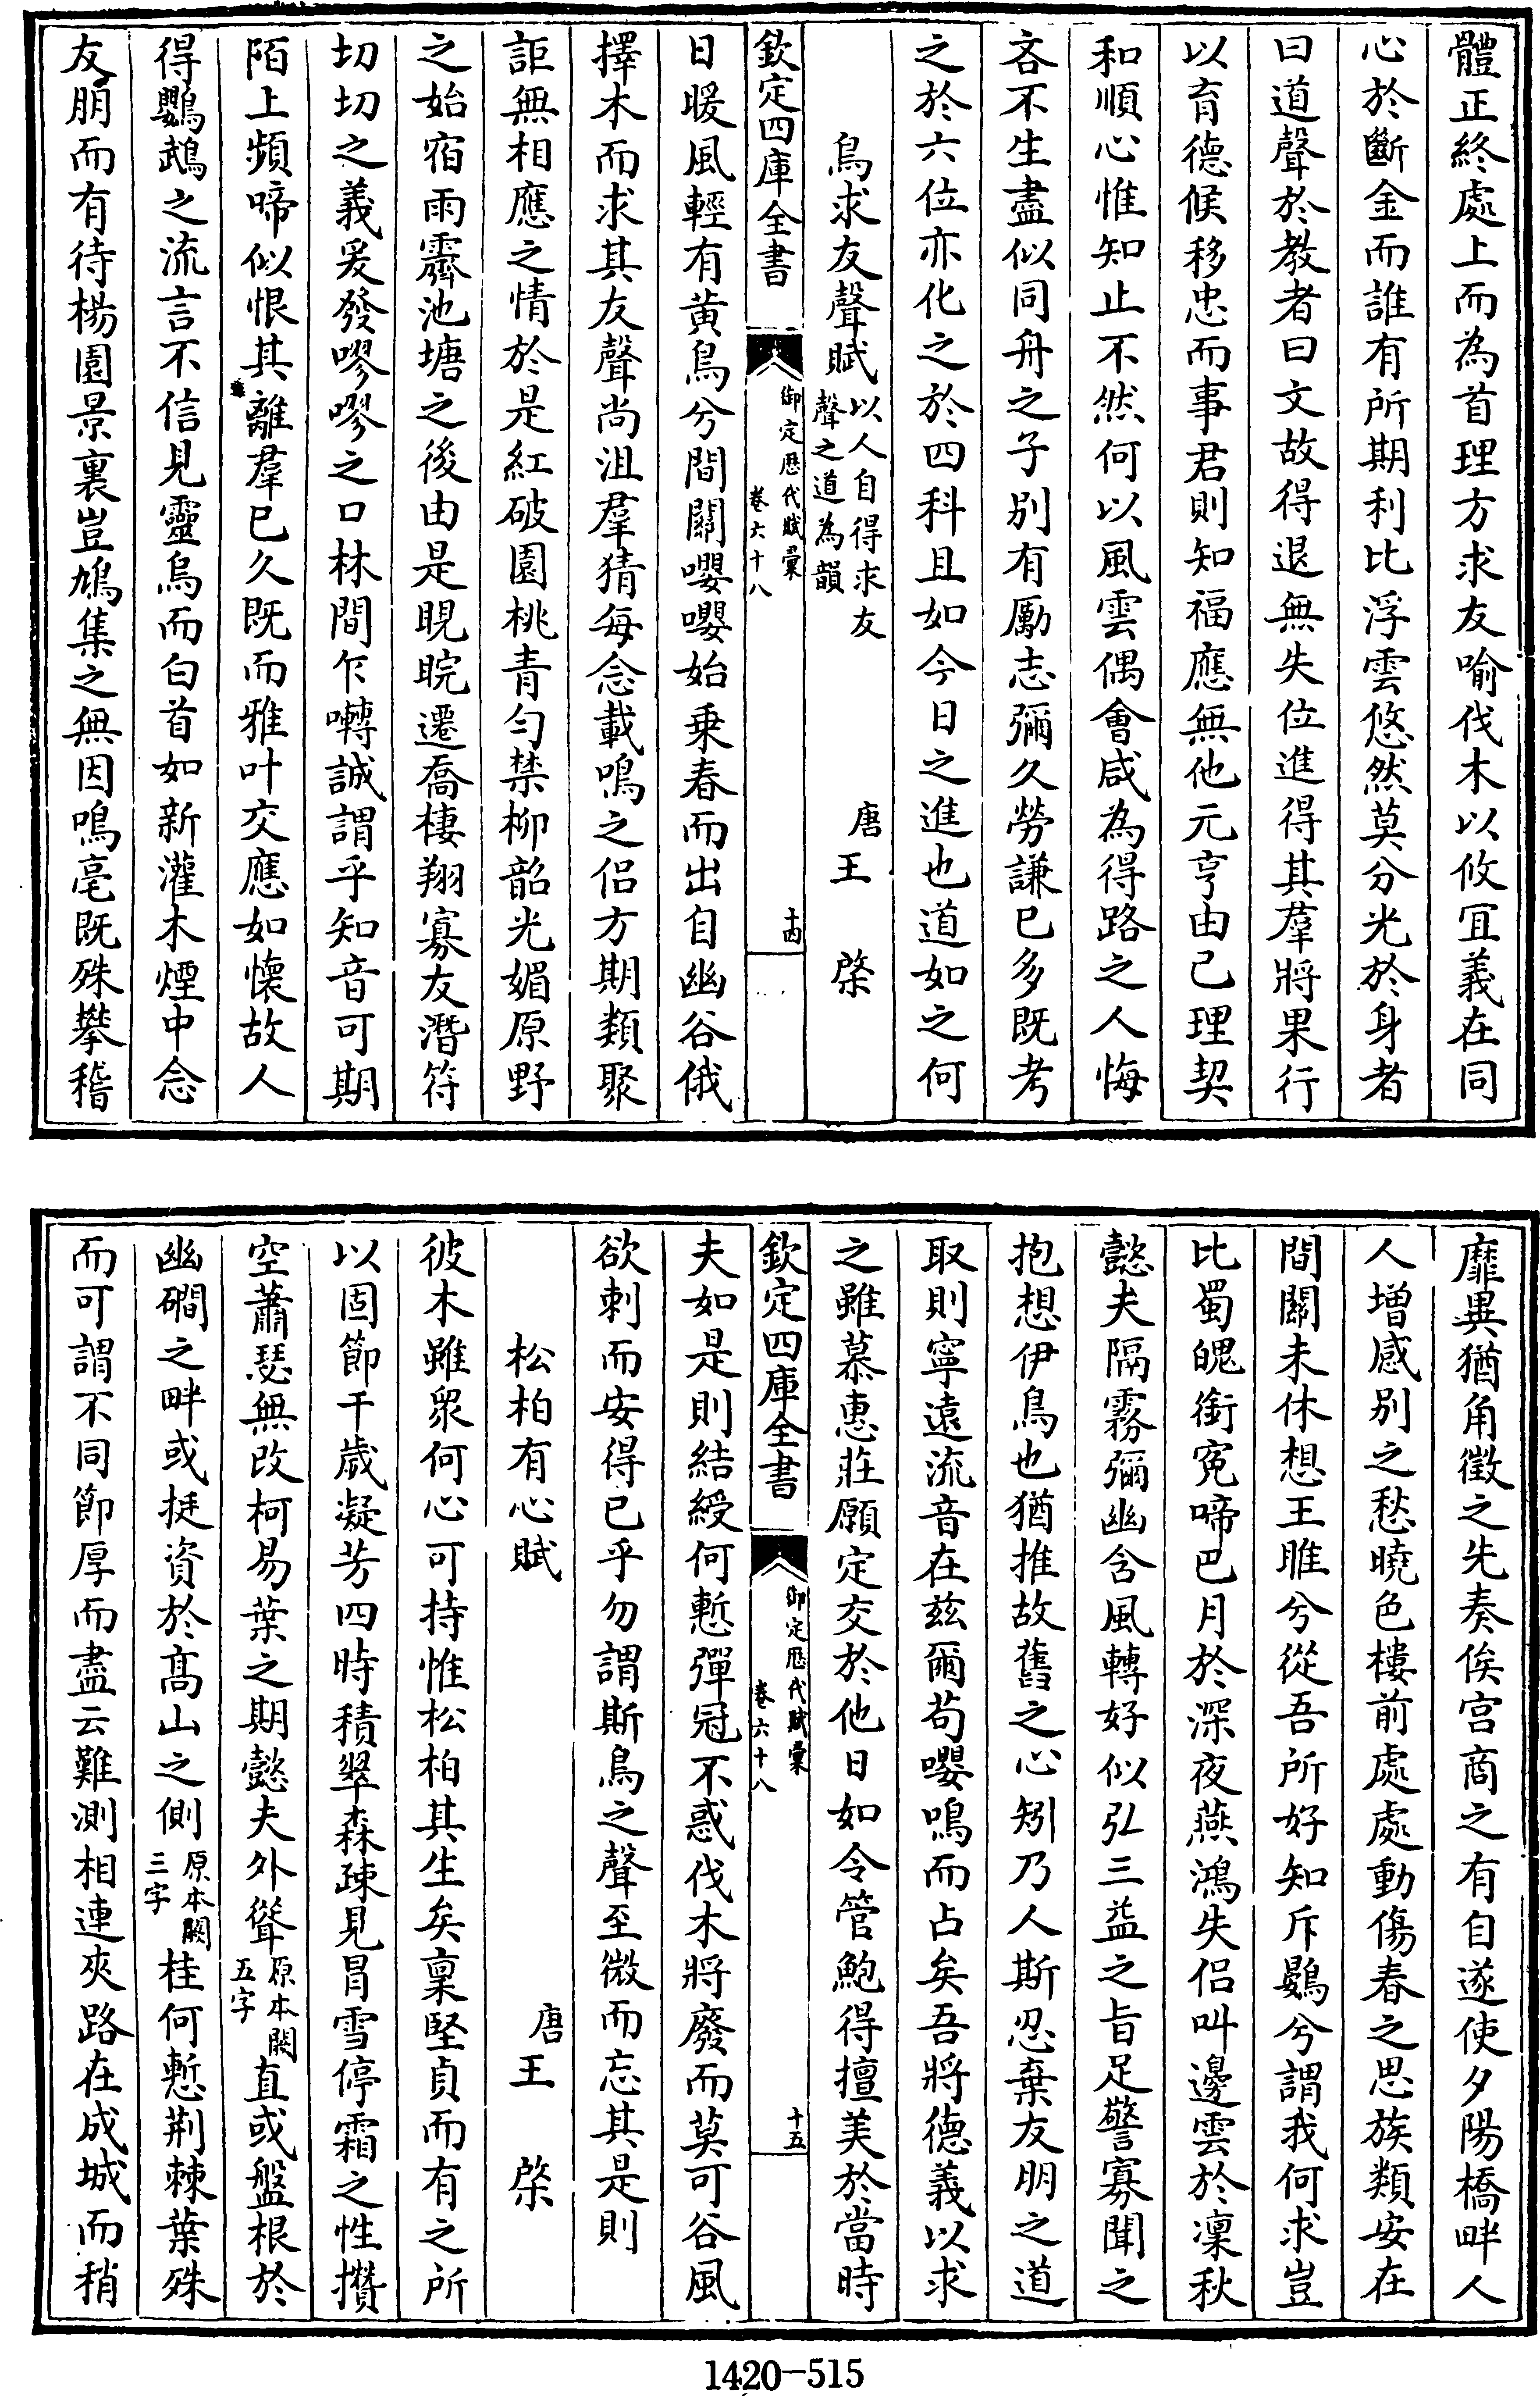 體正終處上而為首理方求友喻伐木以攸冝義在同
心於斷金而誰有所期利比浮雲悠然莫分光於身者
曰道聲於教者曰文故得退無失位進得其羣將果行
以育德候移忠而事君則知福應無他元亨由己理契
和順心惟知止不然何以風雲偶會咸為得路之人悔
吝不生盡似同舟之子别有勵志彌久勞謙已多既考
之於六位亦化之於四科且如今日之進也道如之何
鳥求友聲賦以人自得求友聲之道為韻 唐王 棨
欽定四庫全書 御定歴代賦彙 卷六十八 十四
日暖風輕有黄鳥兮間關嚶嚶始乗春而出自幽谷俄
擇木而求其友聲尚沮羣猜每念載鳴之侣方期類聚
詎無相應之情於是紅破園桃青勻禁柳韶光媚原野
之始宿雨霽池塘之後由是睍睆遷喬棲翔寡友潛符
切切之義爰發嘐嘐之口林間乍囀誠謂乎知音可期
陌上頻啼似恨其離羣已久既而雅叶交應如懷故人
得鸚鵡之流言不信見靈烏而白首如新灌木煙中念
友朋而有待楊園景裏豈鳩集之無因鳴亳既殊攀稽
靡異猶角徵之先奏俟宫商之有自遂使夕陽橋畔人
人增感别之愁曉色樓前處處動傷春之思族類安在
間關未休想王雎兮從吾所好知斥鷃兮謂我何求豈
比蜀魄銜寃啼巴月於深夜燕鴻失侣叫邊雲於凜秋
懿夫隔霧彌幽含風轉好似弘三益之旨足警寡聞之
抱想伊鳥也猶推故舊之心矧乃人斯忍棄友朋之道
取則寧遠流音在兹爾茍嚶鳴而占矣吾將德義以求
之雖慕惠莊願定交於他日如令管鮑得擅美於當時
欽定四庫全書 御定歴代賦彙 卷六十八 十五
夫如是則結綬何慙彈冠不惑伐木將廢而莫可谷風
欲刺而安得已乎勿謂斯鳥之聲至微而忘其是則
松柏有心賦 唐王 棨
彼木雖衆何心可持惟松柏其生矣稟堅貞而有之所
以固節千歲凝芳四時積翠森疎見冒雪停霜之性攅
空蕭瑟無改柯易葉之期懿夫外聳原本闕五字直或盤根於
幽磵之畔或挺資於髙山之側原本闕三字桂何慙荆棘葉殊
而可謂不同節厚而盡云難測相連夾路在成城而稍
1420-515